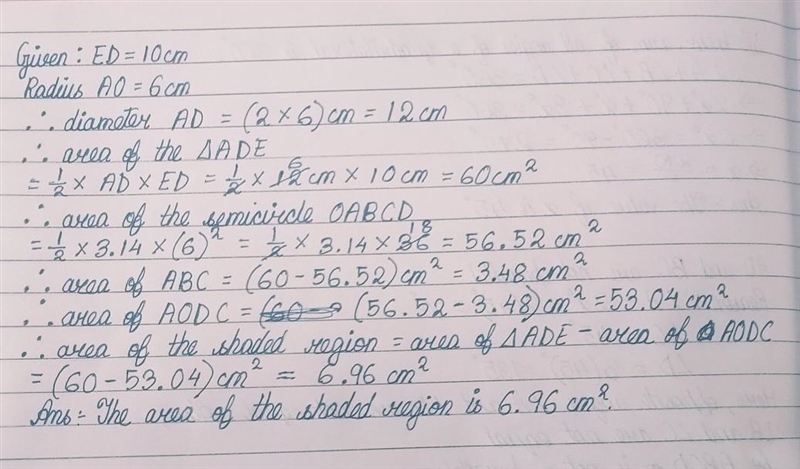 Given : ED = 10cm
Radius AO = 6cm
∴ diameter AD = (2 × 6) cm = 12 cm
∴ area of the △ADE
= 1/2 × AD × ED = 1/2 × 12 6 cm × 10 cm = 60 cm²
∴ area of the semicircle OABCD
= 1/2 × 3.14 × (6)² = 1/2 × 3.14 × 36 18 = 56.52 cm²
∴ area of ABC = (60 - 56.52) cm² = 3.48 cm²
∴ area of AODC = (60 - (56.52 - 3.48) cm² = 53.04 cm²
∴ area of the shaded region = area of △ADE - area of AODC
= (60 - 53.04) cm² = 6.96 cm²
Ans :- The area of the shaded region is 6.96 cm².